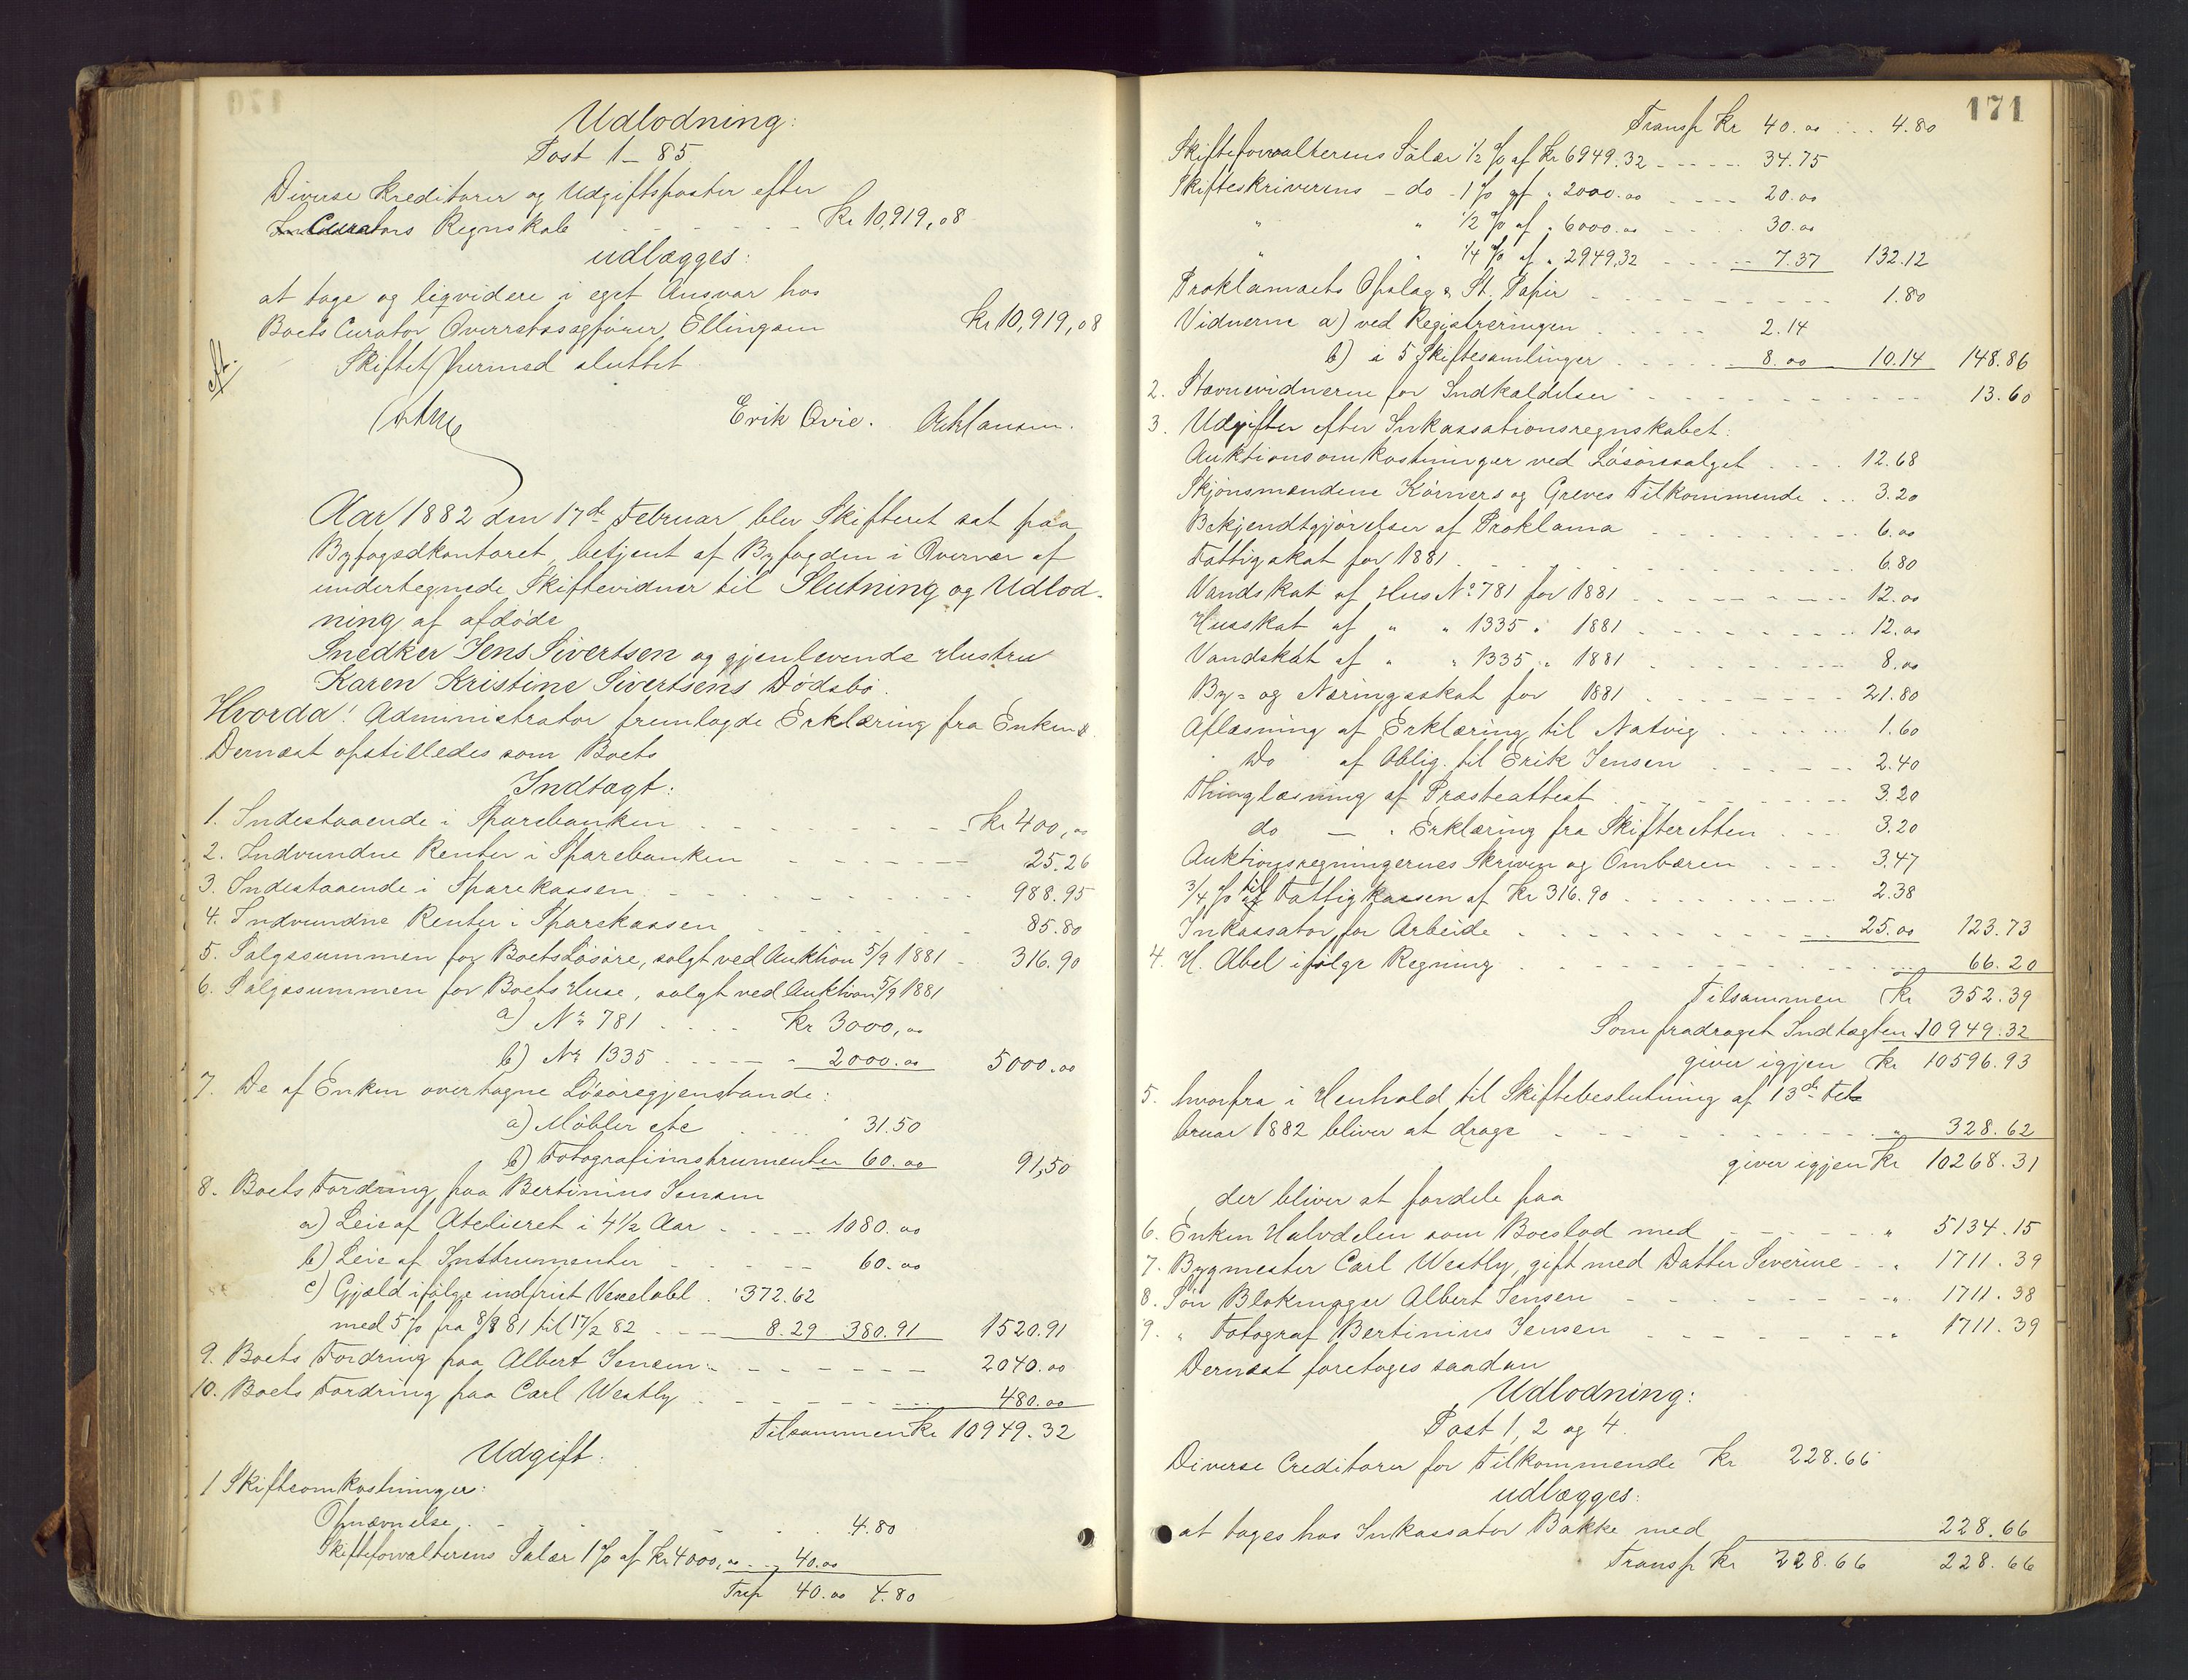 Udlodning:
Post 1 - 85.
Diverse Kreditorer og Udgiftsposter efter
Curators Regnskab - - - - - - - Kr 10,919,08
udlægges:
at tage og liqvidere i eget Ansvar hos
Boets Curator Overretssagfører Ellingsen Kr 10,919,08
Skiftet hermed sluttet.
Erik Qvie.
Aar 1882 den 17de Februar blev Skifteret sat paa
Byfogedkontoret, betjent af Byfogden i Overvær af
undertegnede Skiftevidner til Slutning og Udlod-
ning af afdøde
Snedker Jens Sivertsen og gjenlevende Hustru
Karen Kristine Sivertsens Dødsbo.
Hvorda! Administrator fremlagde Erklæring fra Enken.
Dernæst opstilledes som Boets
Indtægt:
1. Indestaaende i Sparebanken - - - - - Kr 400,00
2. Indvundne Renter i Sparebanken - - - - - 25.26
3. Indestaaende i Sparekassen - - - - - 988.95
4. Indvundne Renter i Sparekassen - - - - - 85.80
5. Salgssummen for Boets Løsøre, solgt ved Auktion 5/9 1881 - 316.90
6. Salgssummen for Boets Huse, solgt ved Auktion 5/9 1881
a) No 781 . . . . Kr 3000,00
b) No 1335 - - - - - 2000.00 5000.00
7. De af Enken overtagne Løsøregjenstande:
a) Møbler etc . . . 31.50
b) Fotografiinstrumenter 60.00 91,50
8. Boets Fordring paa Bertinius Jensen
a) Leie af Atelieret i 4 1/2 Aar - - - 1080.00
b) Leie af Instrumenter - - - 60.00
c) Gjæld ifølge indfriet Vexelobl. 372.62
med 5 % fra 8/9 81 til 17/2 82 - - - 8.29 380.91 1520.91
9. Boets Fordring paa Albert Jensen - - - - - 2040.00
10. Boets Fordring paa Carl Westly - - - - - 480.00
Tilsammen Kr 10949.32
Udgift:
1 Skifteomkostninger:
Opnævnelse - - - 4.80
Skifteforvalterens Salær 1 % af Kr 4000,00 - - 40.00
Trsp 40.00 4.80
171
Transp Kr 40.00 . . . 4.80
Skifteforvalterens Salær 1/2 % af Kr 6949.32 - - - - 34.75
Skifteskriverens - do - 1 % af " 2000.00 - - - - 20.00
" " 1/2 % af " 6000.00 - - - - 30.00
" " 1/4 % af " 2949,32 - - - - 7.37 132.12
Proklamaets Opslag & St. Papir - - - - - - - 1.80
Vidnerne a) ved Registreringen - - - - 2.14
b) i 5 Skiftesamlinger - - - - 8.00 10.14 148.86
2. Stævnevidnerne for Indkaldelser - - - - - - - 13.60
3. Udgifter efter Inkassationsregnskabet:
Auktionsomkostninger ved Løsøresalget . . . . 12.68
Skjønsmændene Körners og Greves Tilkommende . . . 3.20
Bekjendtgjørelser af Proklama - - - - - - 6.00
Fattigskat for 1881 - - - - - - 6.80
Vandskat af Hus No 781 for 1881 - - - - - - 12.00
Husskat af " " 1335 " 1881 - - - - - - 12.00
Vandskat af " " 1335 " 1881 - - - - - - 8.00
By- og Næringsskat for 1881 - - - - - - 21.80
Aflæsning af Erklæring til Natvig - - - - - 1.60
Do af Oblig. til Erik Jensen - - - - - 2.40
Thinglæsning af Præsteattest - - - - - - 3.20
do — " Erklæring fra Skifteretten - - - 3.20
Auktionsregningernes Skriven og Ombæren . . . . 3.47
3/4 % til Fattigkassen af Kr 316.90 - - - - - - 2.38
Inkassator for Arbeide - - - - - - 25.00 123.73
4. H. Abel ifølge Regning - - - - - - - 66.20
Tilsammen Kr 352.39
Som fradraget Indtægten 10949.32
giver igjen Kr 10596.93
5. hvorfra i Henhold til Skiftebeslutning af 13de Feb
bruar 1882 bliver at drage - - - - - - " 328.62
giver igjen Kr 10268.31
der bliver at fordele paa
6. Enken Halvdelen som Boeslod med - - - - - " 5134.15
7. Bygmester Carl Westly, gift med Datter Severine - - " 1711.39
8. Søn Blokmager Albert Jensen - - - - - " 1711.38
9. " Fotograf Bertinius Jensen - - - - - " 1711.39
Dernæst foretoges saadan
Udlodning:
Post 1, 2 og 4.
Diverse Creditorer for Tilkommende Kr 228.66
udlægges:
at tages hos Inkassator Bakke med 228.66
Transp Kr 228.66 228.66